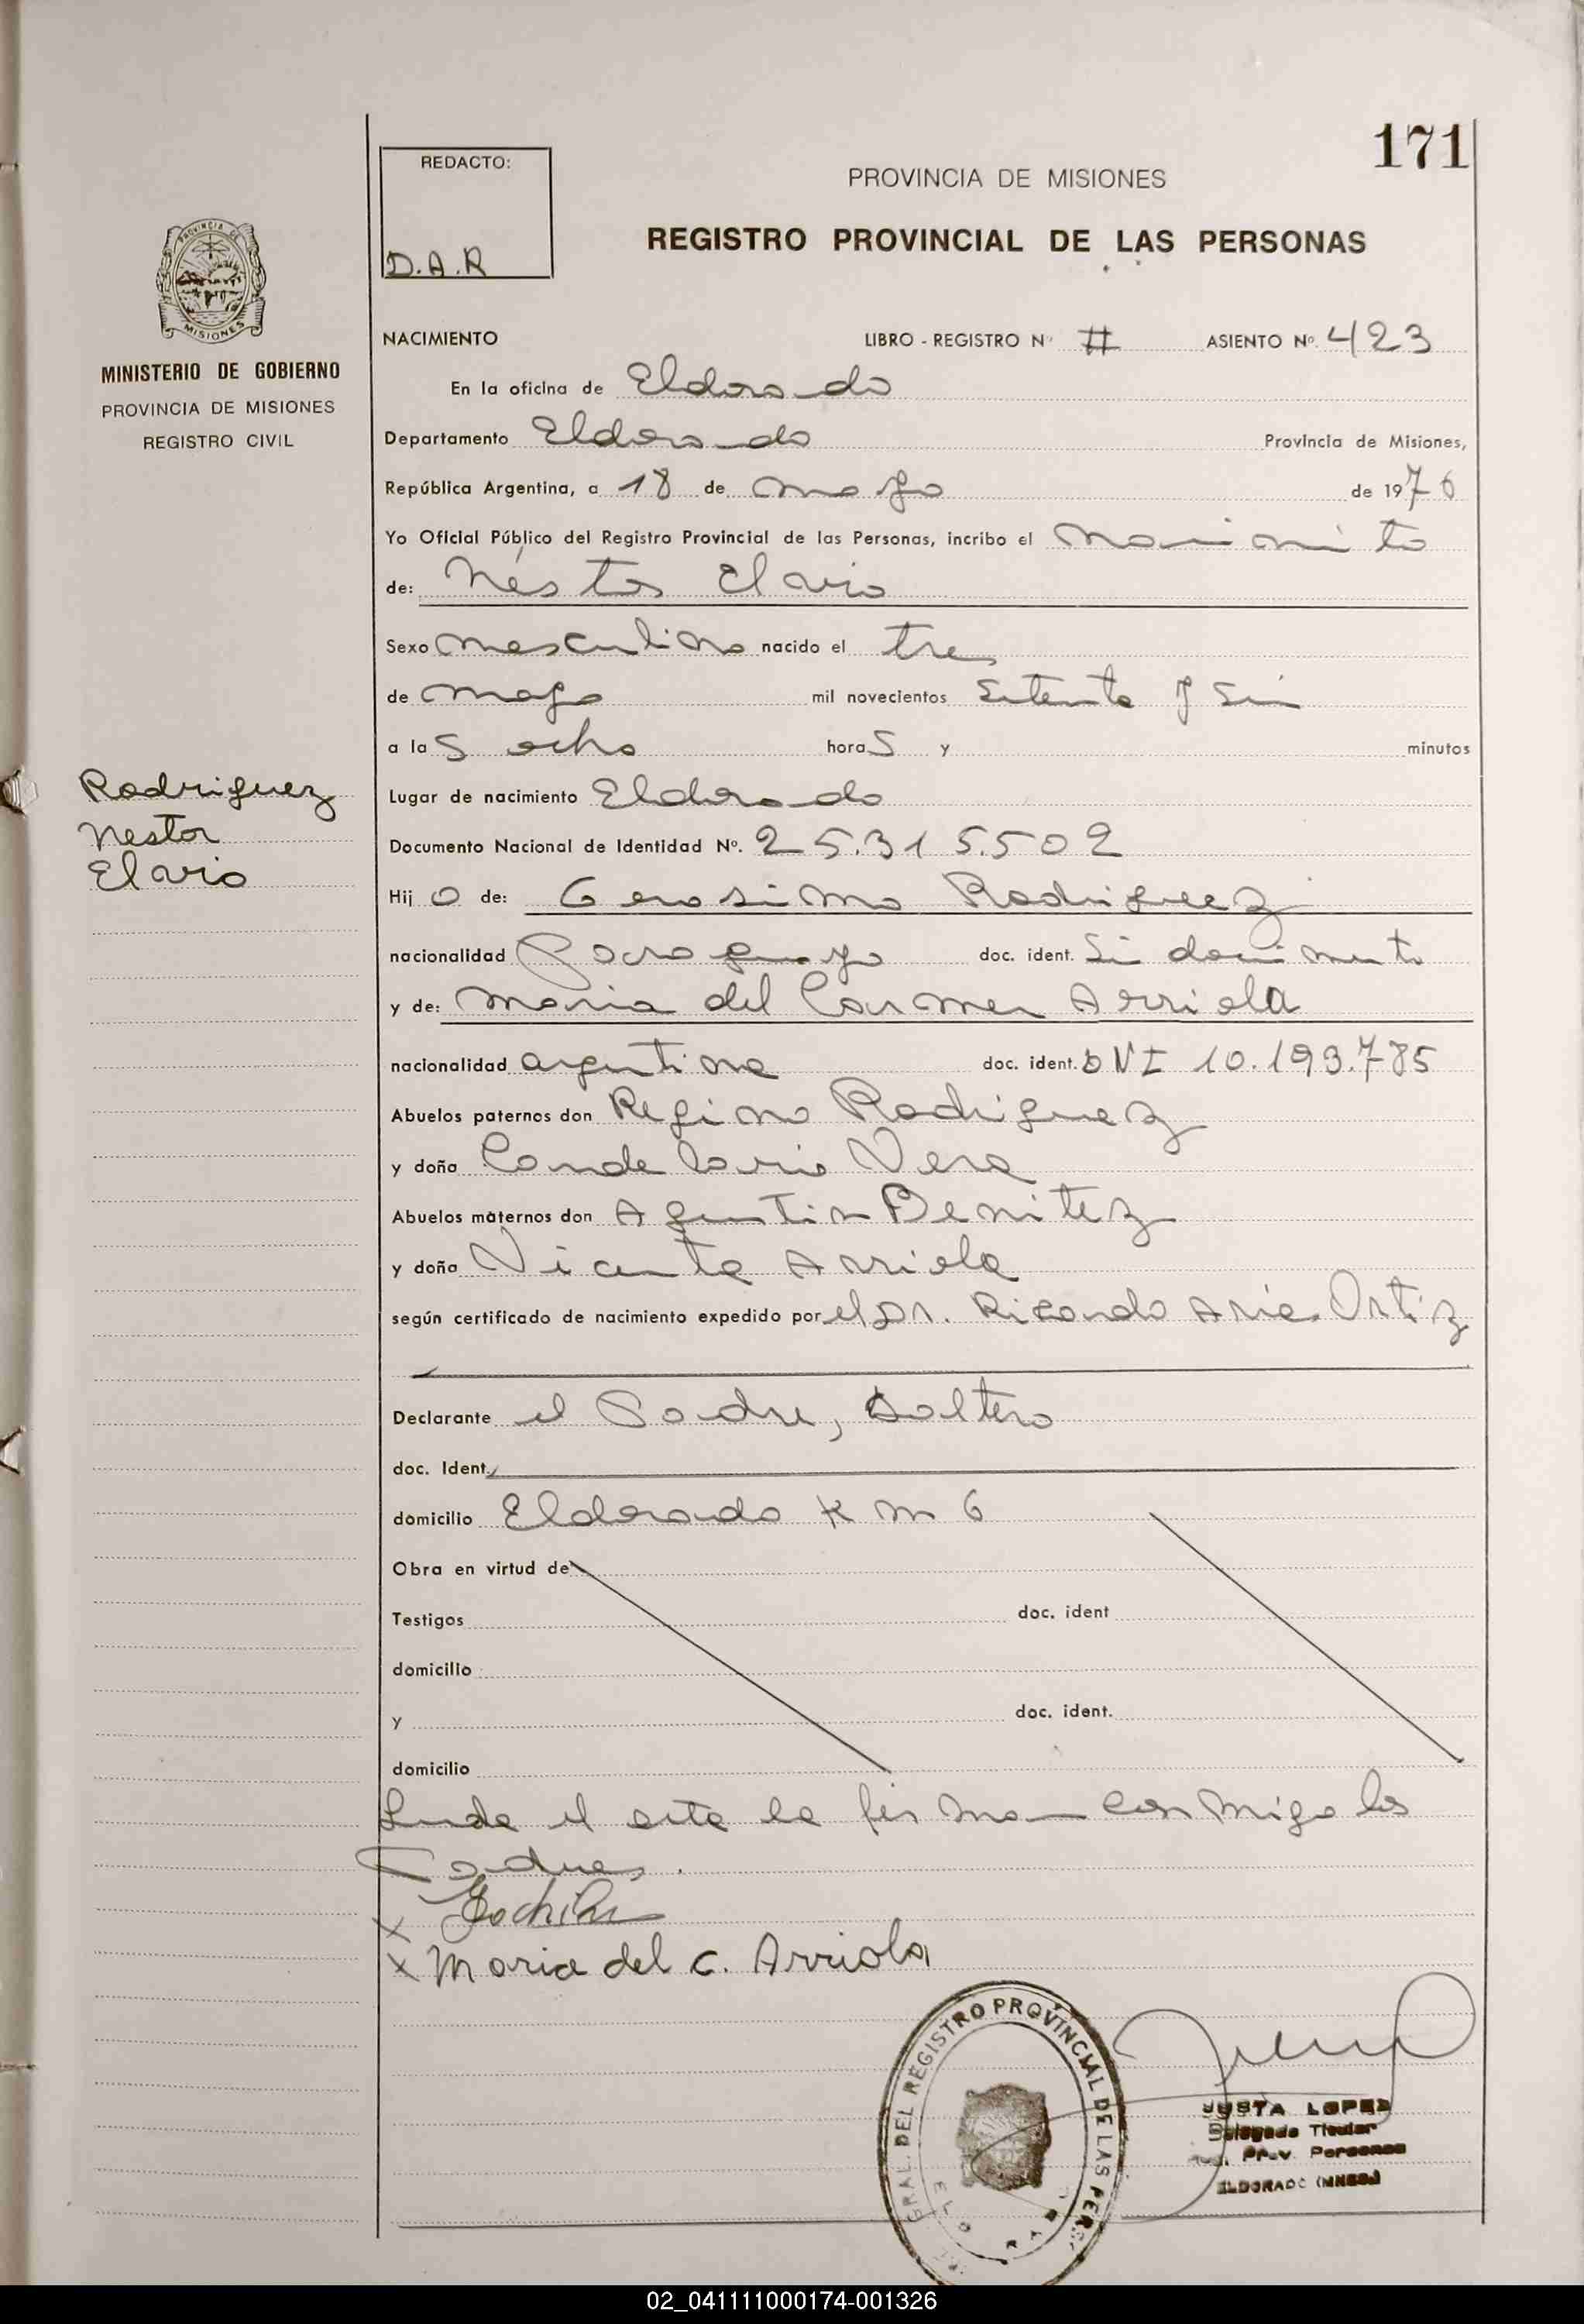 171
REDACTO:
D.A.R
PROVINCIA DE MISIONES
REGISTRO PROVINCIAL DE LAS PERSONAS
PROVINCIA DE
MISIONES
MINISTERIO DE GOBIERNO
PROVINCIA DE MISIONES
REGISTRO CIVIL
NACIMIENTO LIBRO - REGISTRO Nº II ASIENTO Nº. 423
En la oficina de Eldorado
Departamento Eldorado Provincia de Misiones,
República Argentina, a 18 de mayo de 1976
Yo Oficial Público del Registro Provincial de las Personas, incribo el
de: Néstor Elavio
Sexo masculino nacido el tres
de mayo mil novecientos setenta y seis
a las ocho horas y minutos
Rodriguez
Nestor
Elavio
Lugar de nacimiento Eldorado
Documento Nacional de Identidad Nº. 25.315.502
Hijo de: Gerosimo Rodriguez
nacionalidad Paraguayo doc. ident.
y de: Maria del Carmen Arriola
nacionalidad argentina doc. ident. DNI 10.193.785
Abuelos paternos don Regino Rodriguez
y doña Candelaria Vera
Abuelos maternos don Agustin Benitez
y doña Vicenta Arriola
según certificado de nacimiento expedido por el Dr. Ricardo Ortiz
Declarante el Padre, Soltero
doc. Ident.
domicilio Eldorado Km 6
Obra en virtud de
Testigos doc. ident
domicilio
y doc. ident.
domicilio
Leida el acta la firman conmigo los
Padres.
x
x Maria del C. Arriola
GRAL. DEL REGISTRO PROVINCIAL DE LAS PERS
JUSTA LOPEZ
Delegada Titular
Prov. Personas
ELDORADO (MNES.)
02_041111000174-001326